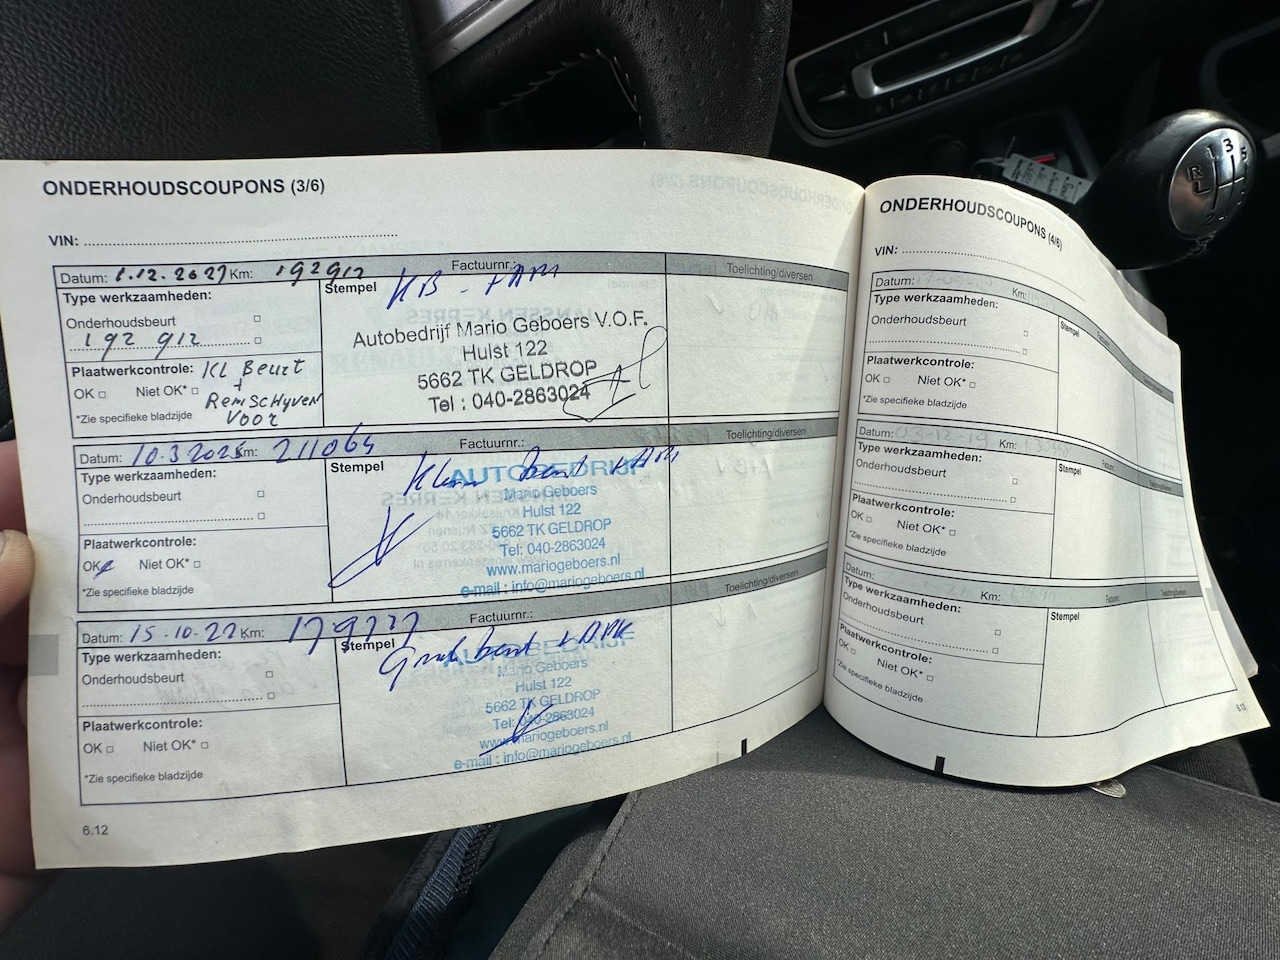 ONDERHOUDSCOUPONS (3/6)
VIN:
Datum: 1.12.2027 Km: 192912 Factuurnr.: Toelichting/diversen
Type werkzaamheden:
Onderhoudsbeurt
192 912
Plaatwerkcontrole: KL Beurt
OK Niet OK* +
Remschyven
*Zie specifieke bladzijde Voor
Stempel KB - + APK
Autobedrijf Mario Geboers V.O.F.
Hulst 122
5662 TK GELDROP
Tel : 040-2863024
Datum: 10.3 2025 Km: 211064 Factuurnr.: Toelichting/diversen
Type werkzaamheden:
Onderhoudsbeurt
Plaatwerkcontrole:
OK Niet OK*
*Zie specifieke bladzijde
Stempel
Klein beurt + APK
AUTOBEDRIJF
Mario Geboers
Hulst 122
5662 TK GELDROP
Tel: 040-2863024
www.mariogeboers.nl
e-mail : info@mariogeboers.nl
Datum: 15.10.22 Km: 179727 Factuurnr.: Toelichting/diversen
Type werkzaamheden:
Onderhoudsbeurt
Plaatwerkcontrole:
OK Niet OK*
*Zie specifieke bladzijde
Stempel
Groot beurt + APK
AUTOBEDRIJF
Mario Geboers
Hulst 122
5662 TK GELDROP
Tel: 040-2863024
www.mariogeboers.nl
e-mail : info@mariogeboers.nl
6.12
ONDERHOUDSCOUPONS (4/6)
VIN:
Datum: Km: Factuurnr.: Toelichting/diversen
Type werkzaamheden:
Onderhoudsbeurt
Plaatwerkcontrole:
OK Niet OK*
*Zie specifieke bladzijde
Stempel
Datum: 03-12-19 Km: Factuurnr.: Toelichting/diversen
Type werkzaamheden:
Onderhoudsbeurt
Plaatwerkcontrole:
OK Niet OK*
*Zie specifieke bladzijde
Stempel
Datum: Km: Factuurnr.: Toelichting/diversen
Type werkzaamheden:
Onderhoudsbeurt
Plaatwerkcontrole:
OK Niet OK*
*Zie specifieke bladzijde
Stempel
6.13
1 3 5
R
2